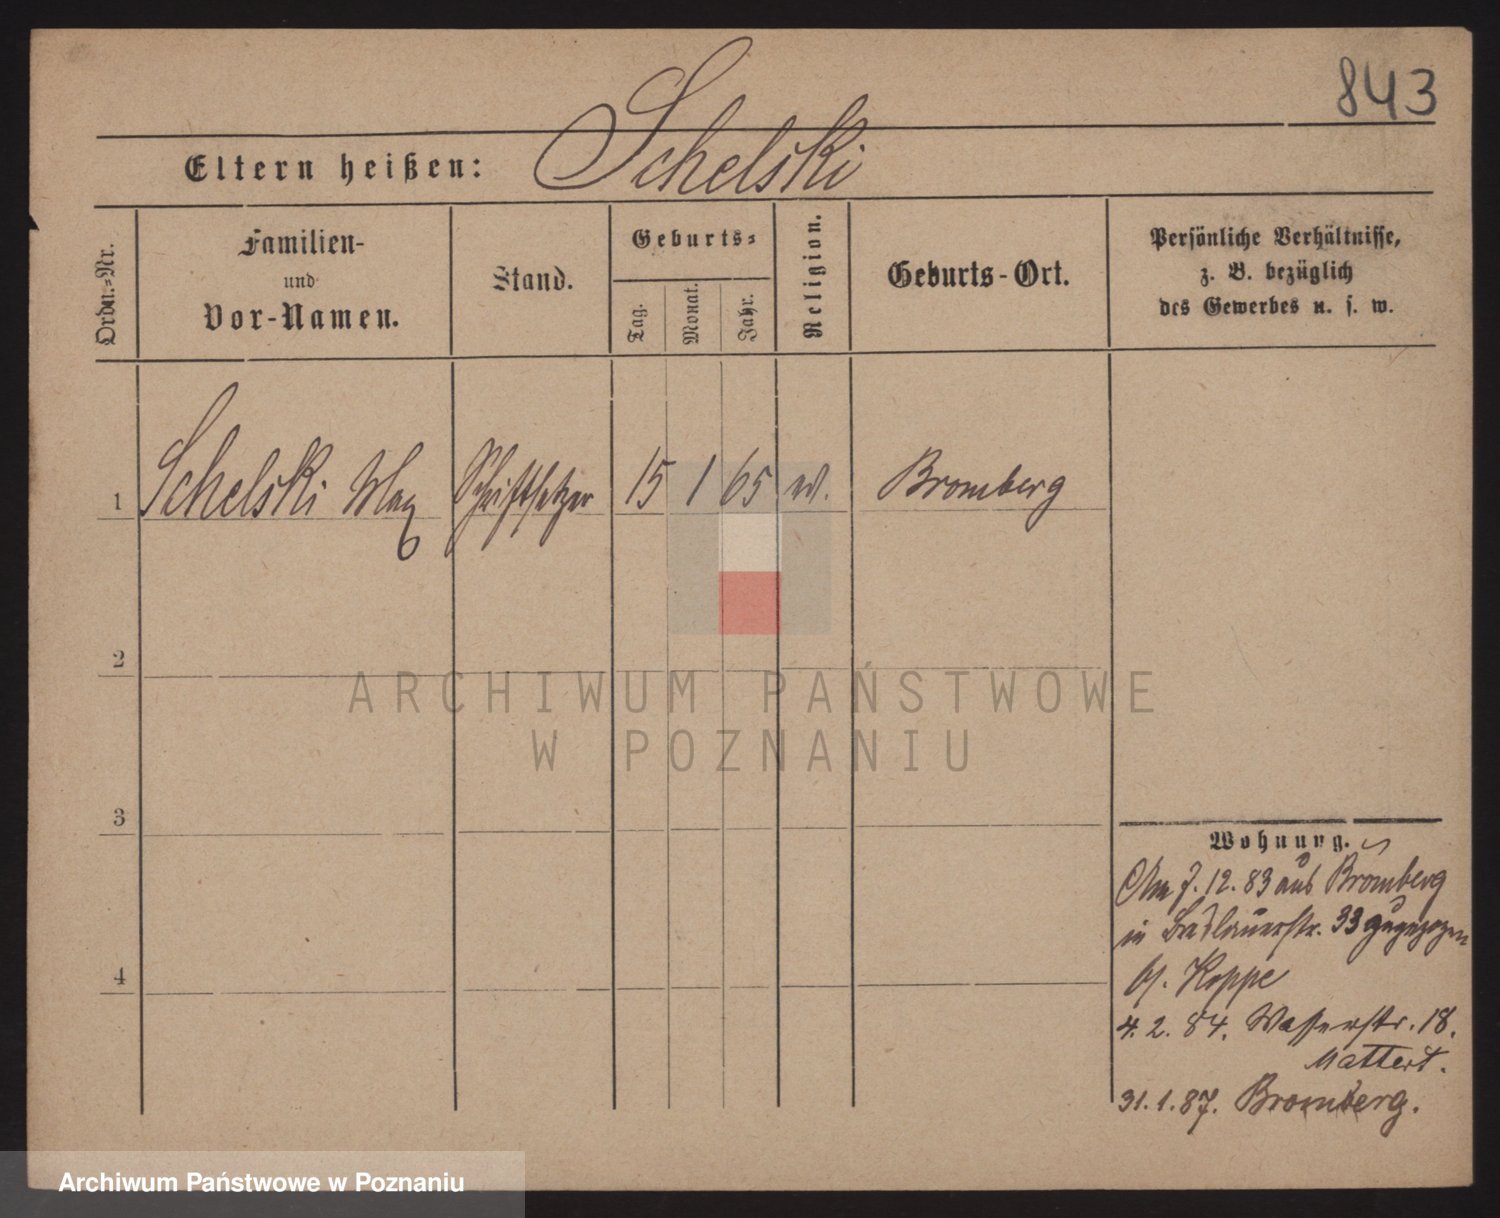 843
Eltern heißen: Schelski
Ordn.-Nr.
Familien-
und
Vor-Namen.
Stand.
Geburts-
Tag.
Monat.
Jahr.
Religion.
Geburts-Ort.
Persönliche Verhältnisse,
z. B. bezüglich
des Gewerbes u. s. w.
1 Schelski Max Schriftsetzer 15 1 65 Bromberg
2
3
4
Wohnung.
Am 7. 12. 83 aus Bromberg
in 33 zugezogen
Koppe
4. 2. 84. Wasserstr. 18.
Mattert.
31. 1. 87. Bromberg.
ARCHIWUM PAŃSTWOWE
W POZNANIU
Archiwum Państwowe w Poznaniu